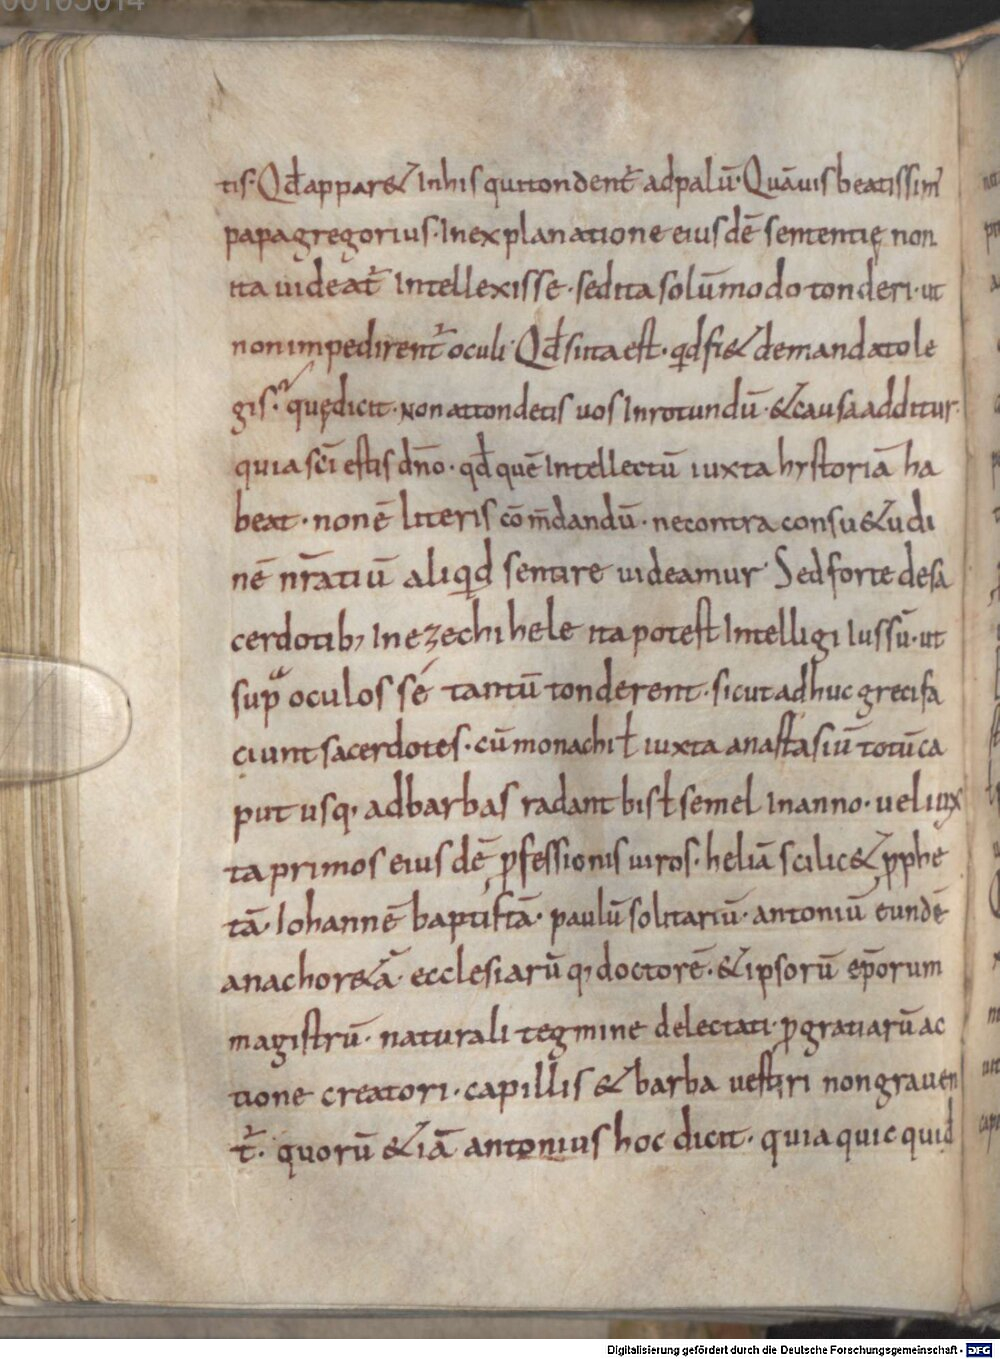 00105014
tis· Qđ appar& Inhis qui tondent᷑ ad palū· Quāuis beatissim̄
papa gregorius· In explanatione eiusdē sententię non
ita uideat᷑ Intellexisse· sed ita solūmodo tonderi· ut
non impedirent᷑ oculi· Qđ si ita est· qđ fi& de mandato le
gis· quę dicit· Non attondetis uos In rotundū· & causa additur·
quia sc̄i estis dn̄o· qđ quē Intellectū iuxta hystoriā ha
beat· non ē literis cōm̄dandū· ne contra consu&udi
nē nr̄atiū aliqđ sentire uideamur· Sed forte de sa
cerdotib; In ezechihele ita potest Intelligi Iussū· ut
supᵃ oculos se tantū tonderent· sicut adhuc greci fa
ciunt sacerdotes· cū monachi ł iuxta anastasiū totū ca
put usq; ad barbas radant bis ł semel In anno· uel iux
ta primos eiusdē ꝓfessionis uiros· heliā scilic& ꝓphe
tā· Iohannē baptistā· paulū solitariū· antoniū eundē
anachor&ā· ecclesiarū q; doctorē· & ipsorū ep̄orum
magistrū· naturali tegmine delectati· ꝓ gratiarū ac
tione creatori· capillis & barba uestiri non grauen
t᷑· quorū &iā antonius hoc dicit· quia quicquid
Digitalisierung gefördert durch die Deutsche Forschungsgemeinschaft - DFG